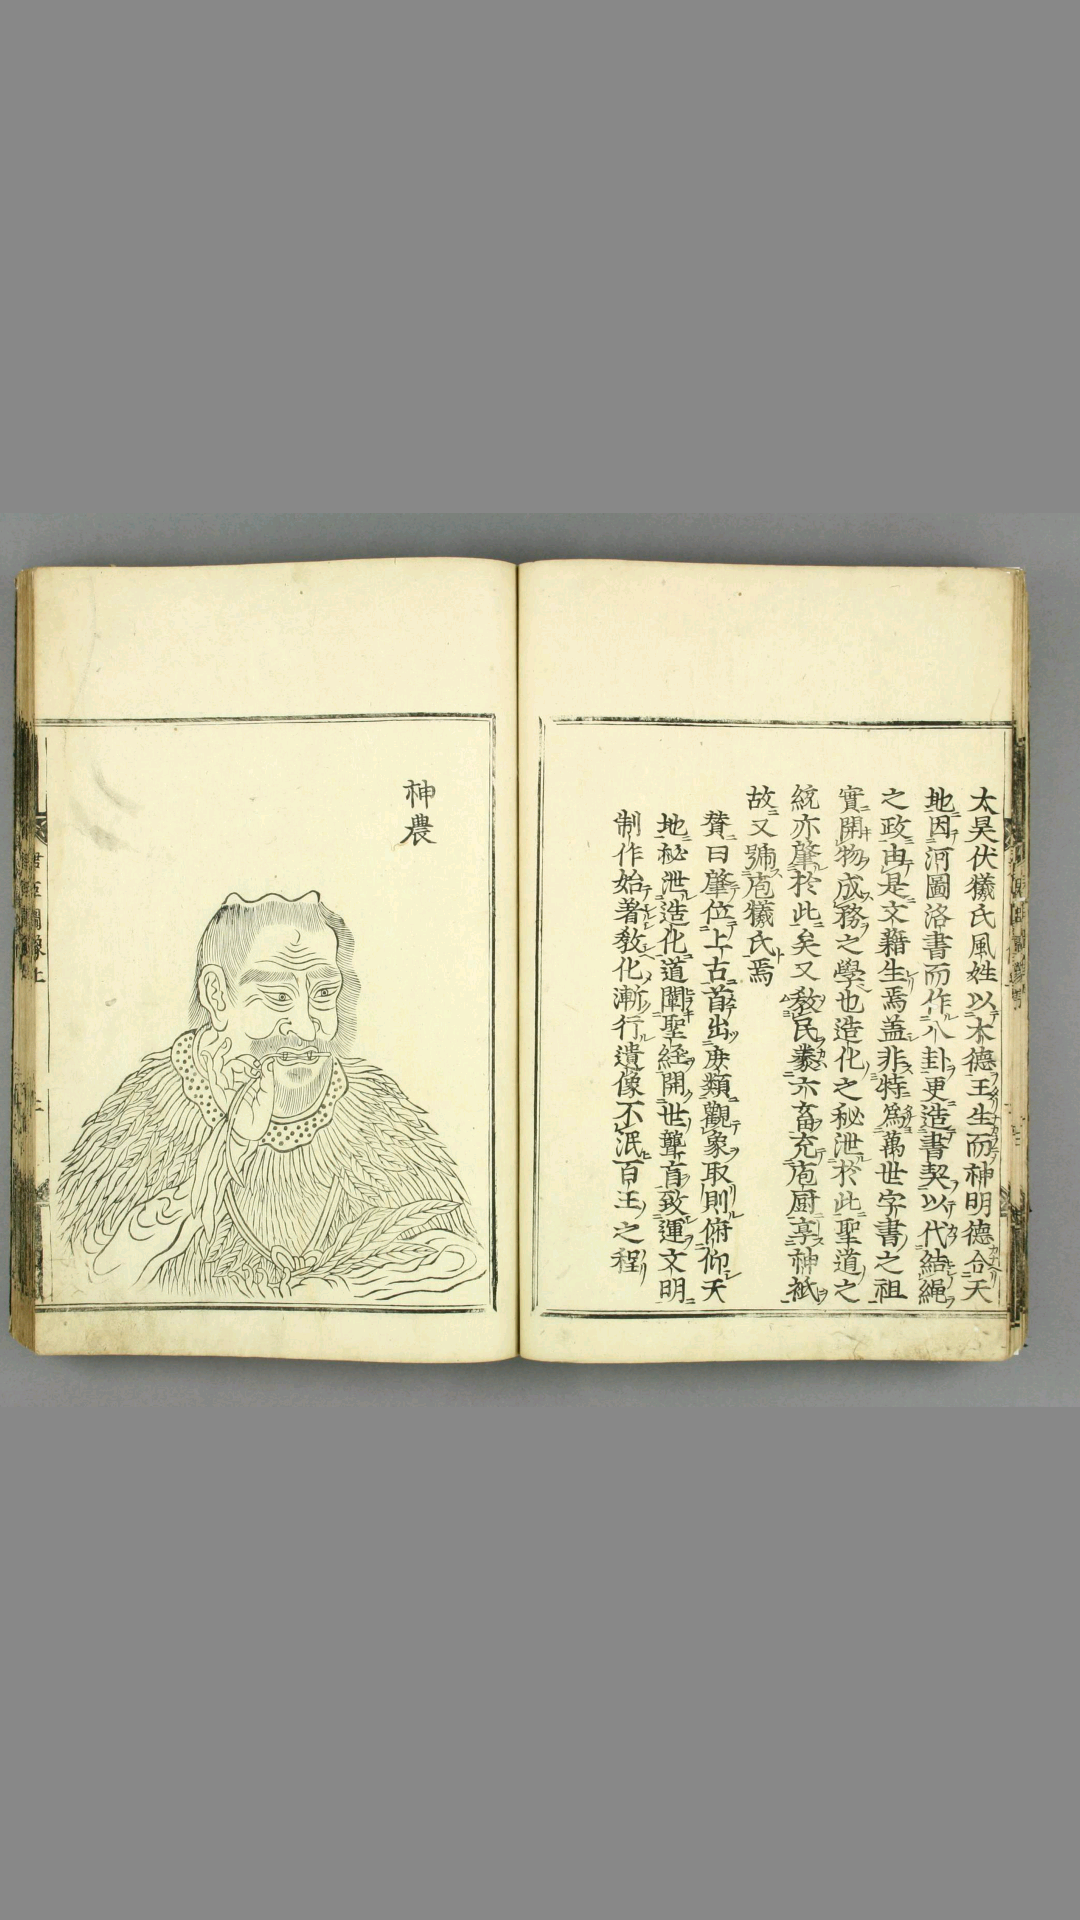 太昊伏犧氏風姓以木德王生而神明德合天
地因河圖洛書而作八卦更造書契以代結繩
之政由是文籍生焉蓋非特爲萬世字書之祖
實開物成務之學也造化之秘泄於此聖道之
統亦肇於此矣又敎民豢六畜充庖厨享神祇
故又號庖犧氏焉
贊曰肇位上古首出庶類觀象取則俯仰天
地秘泄造化道闡聖經開世聾盲致運文明
制作始著敎化漸行遺像不泯百王之程
神農
君臣圖像上